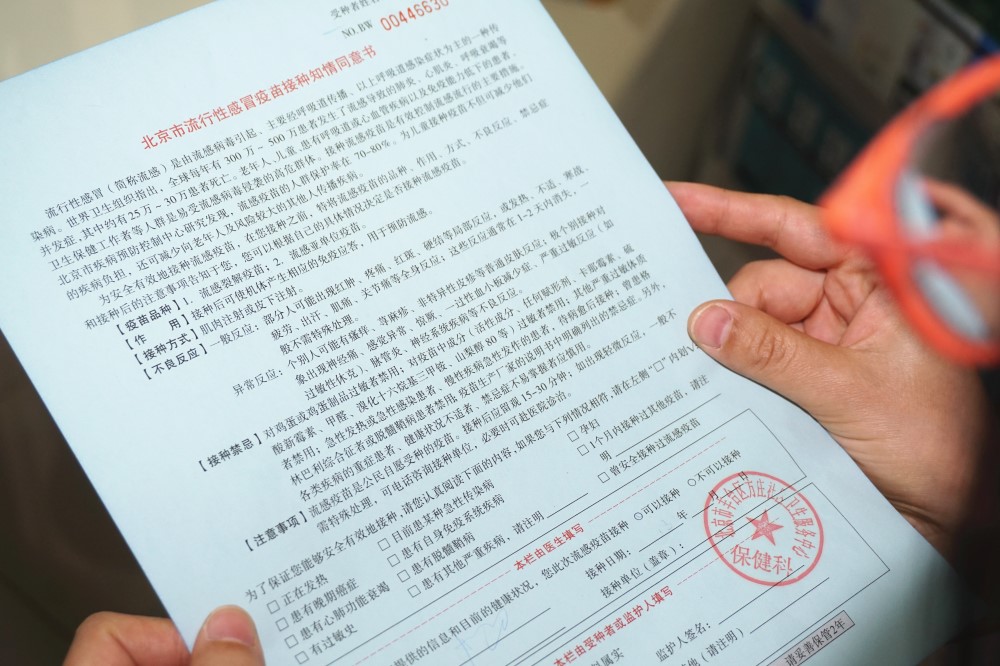 受种者姓名
NO. BW 00446630
北京市流行性感冒疫苗接种知情同意书
流行性感冒（简称流感）是由流感病毒引起、主要经呼吸道传播、以上呼吸道感染症状为主的一种传
染病。世界卫生组织指出，全球每年有300万～500万患者发生了流感导致的肺炎、心肌炎、呼吸衰竭等
并发症，其中约有25万～30万患者死亡。老年人、儿童、患有呼吸道或心血管疾病以及免疫力低下的患者、
卫生保健工作者等人群是易受流感病毒侵袭的高危群体。接种流感疫苗是有效控制流感流行的主要措施，
北京市疾病预防控制中心研究发现，流感疫苗的人群保护率在70~80%。为儿童接种疫苗不但可减少他们
的疾病负担，还可减少向老年人及风险较大的其他人传播疾病。
为安全有效地接种流感疫苗，在您接种之前，特将流感疫苗的品种、作用、方式、不良反应、禁忌症
和接种后的注意事项告知于您，您可以根据自己的具体情况决定是否接种流感疫苗。
【疫苗品种】1. 流感裂解疫苗；2. 流感亚单位疫苗。
【作 用】接种后可使机体产生相应的免疫应答，用于预防流感。
【接种方式】肌肉注射或皮下注射。
【不良反应】一般反应：部分人可能出现红肿、疼痛、红斑、硬结等局部反应，或发热、不适、寒战、
疲劳、出汗、肌痛、关节痛等全身反应；这些反应通常在1~2天内消失，一
般不需特殊处理。
异常反应：个别人可能有瘙痒、荨麻疹、非特异性皮疹等普通皮肤反应，极个别接种对
象出现神经痛、感觉异常、惊厥、一过性血小板减少症、严重过敏反应（如
过敏性休克）、脉管炎、神经系统疾病等不良反应。
【接种禁忌】对鸡蛋或鸡蛋制品过敏者禁用；对疫苗中成分（活性成分、任何赋形剂、卡那霉素、硫
酸新霉素、甲醛、溴化十六烷基三甲铵、山梨醇80等）过敏者禁用；其他严重过敏体质
者禁用；急性发热或急性感染患者、慢性疾病急性发作的患者，待病愈后接种，曾患格
林巴利综合症者或脱髓鞘病患者禁用。疫苗生产厂家的说明书中明确列出的禁忌症。另外，
各类疾病的重症患者、健康状况不适者、禁忌症不易掌握者应慎用。
【注意事项】流感疫苗是公民自愿受种的疫苗。接种后应留观15~30分钟；如出现轻微反应，一般不
需特殊处理，可电话咨询接种单位，必要时可赴医院诊治。
为了保证您能够安全有效地接种，请您认真阅读下面的内容，如果您与下列情况相符，请在左侧“□”内划V
□正在发热 □目前患某种急性传染病 □孕妇
□患有晚期癌症 □患有自身免疫系统疾病 □1个月内接种过其他疫苗，请注
□患有心肺功能衰竭 □患有脱髓鞘病 明
□有过敏史 □患有其他严重疾病，请注明 □曾安全接种过流感疫苗
本栏由医生填写
提供的信息和目前的健康状况，您此次流感疫苗接种 ○可以接种 ○不可以接种
接种日期： 年 月 日
接种单位（盖章）：
北京市丰台区方庄社区卫生服务中心
保健科
本栏由受种者或监护人填写
属实
监护人签名：
其他（请注明）
请妥善保管2年